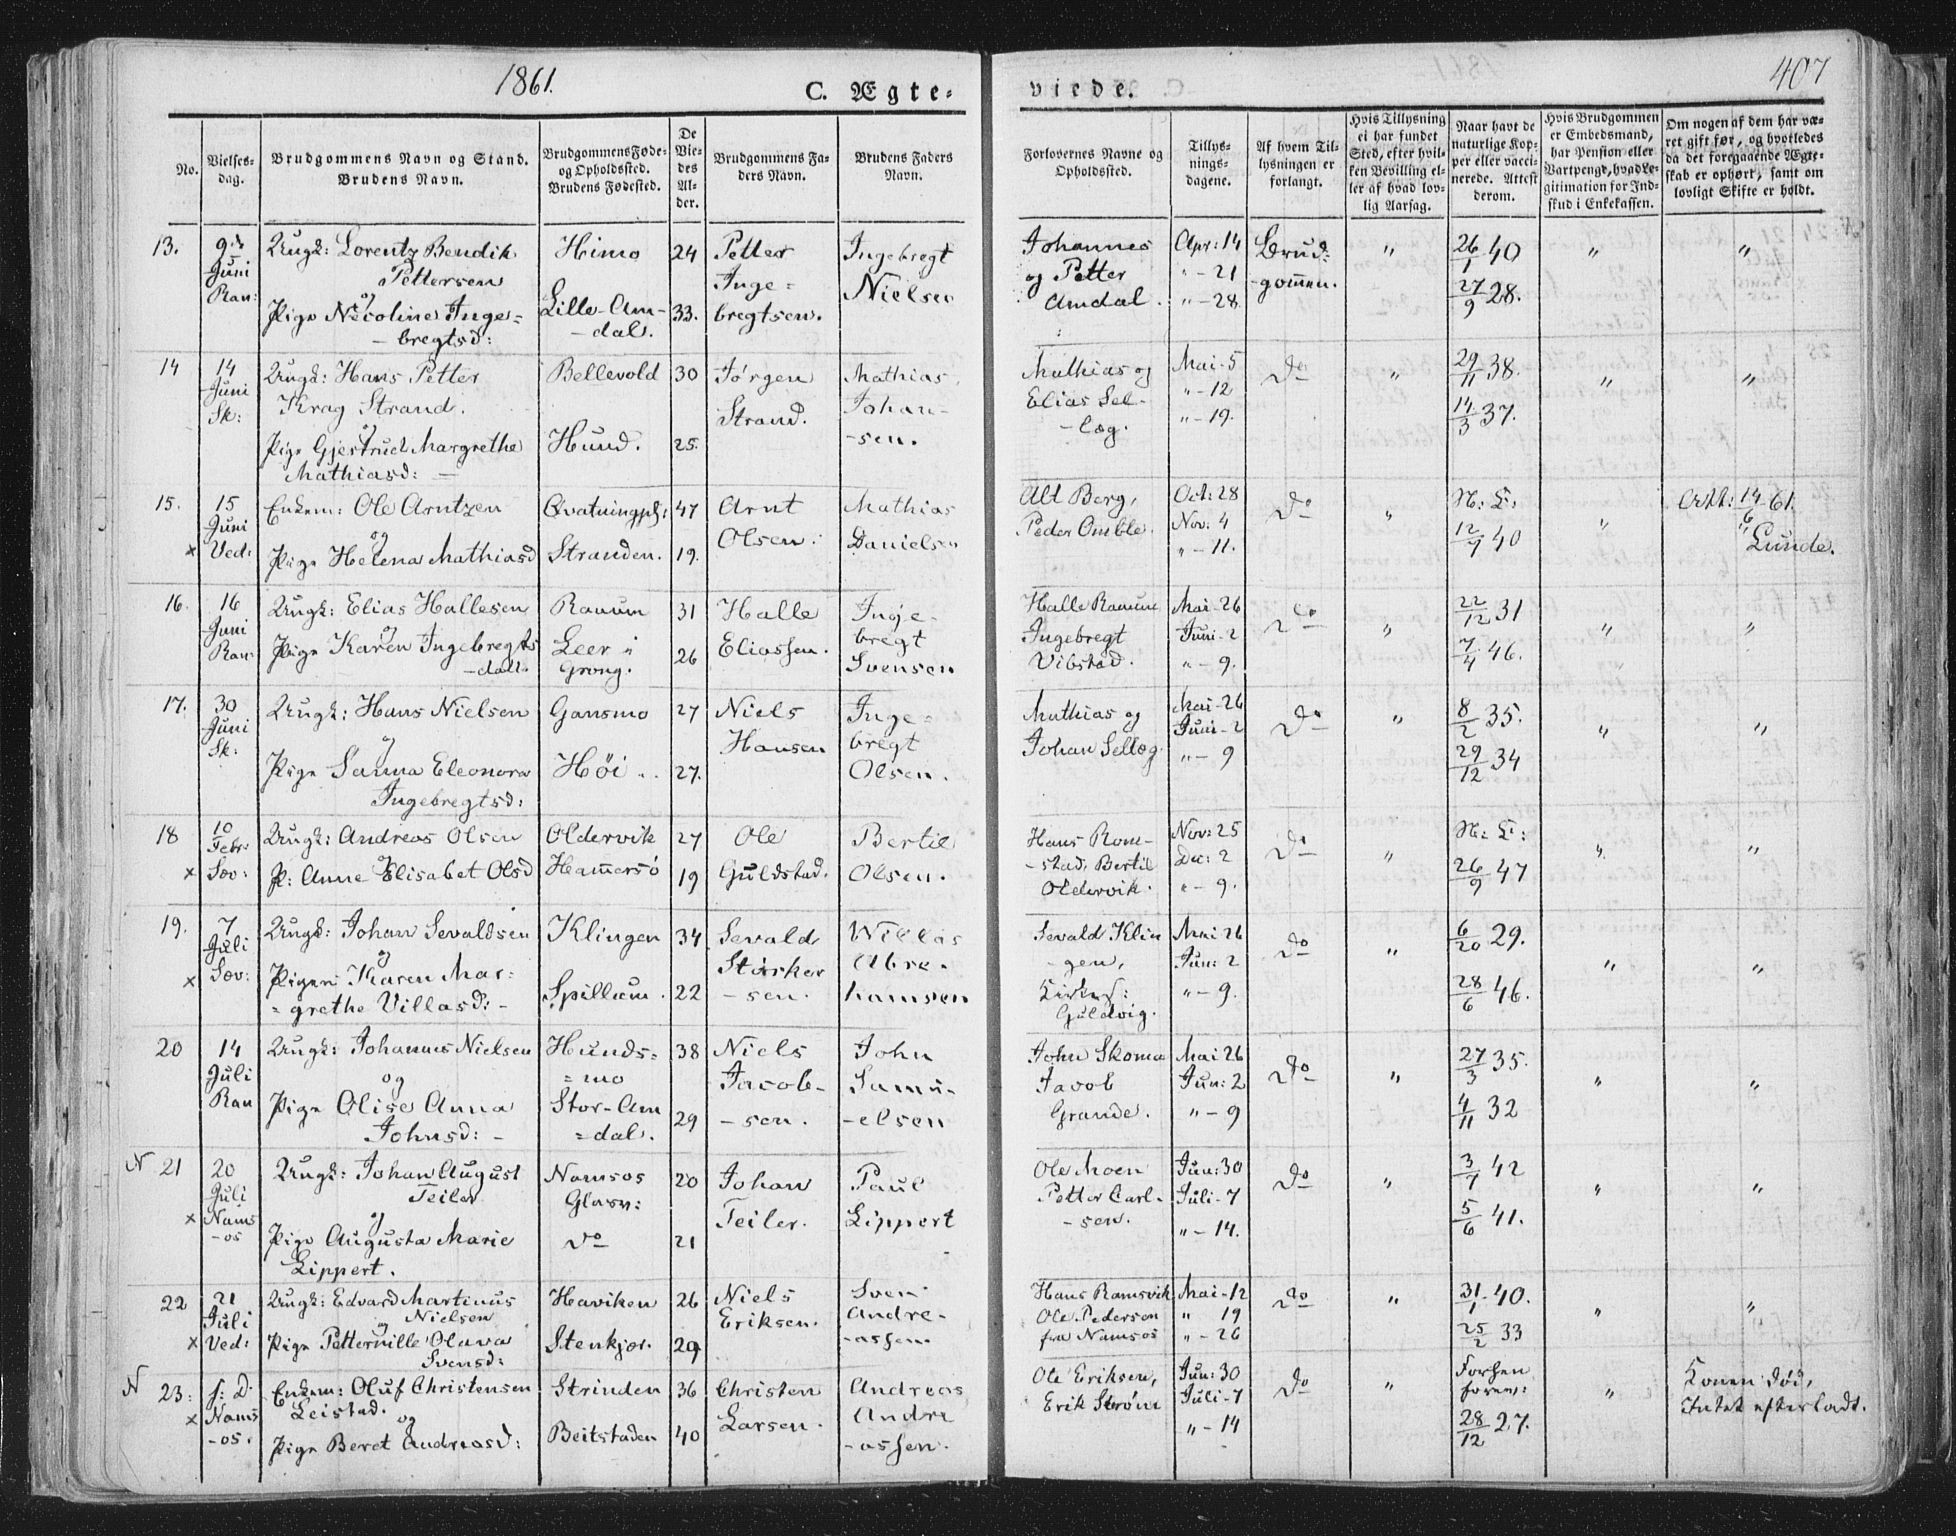 1861.
C. Ægte-
viede.
407
No.
Vielses-
dag.
Brudgommens Navn og Stand.
Brudens Navn.
Brudgommens Føde-
og Opholdssted.
Brudens Fødested.
De
Vie-
des
Al-
der.
Brudgommens Fa-
ders Navn.
Brudens Faders
Navn.
Forlovernes Navne og
Opholdssted.
Tillys-
nings-
dagene.
Af hvem Til-
lysningen er
forlangt.
Hvis Tillysning
ei har fundet
Sted, efter hvil-
ken Bevilling el-
ler af hvad lov-
lig Aarsag.
Naar havt de
naturlige Kop-
per eller vacci-
nerede. Attest
derom.
Hvis Brudgommen
er Embedsmand,
har Pension eller
Vartpenge, hvad Le-
gitimation for Ind-
skud i Enkekassen.
Om nogen af dem har væ-
ret gift før, og hvorledes
da det foregaaende Ægte-
skab er ophørt, samt om
lovligt Skifte er holdt.
13. 9de Juni Ran:
Ungk: Lorentz Bendik
Pettersen
og
Pige Nicoline Inge-
- bregtsd:
Himo
Lille-Am-
- dal.
24
33.
Petter
Inge-
bregtsen.
Ingebregt
Nielsen
Johannes
og Petter
Amdal.
Apr: 14
" - 21
" - 28
Brud-
-gommen.
"
26/1 40
27/9 28.
"
"
14 14 Juni Sk:
Ungk: Hans Petter
Krag Strand.
og
Pige Gjertrud Margrethe
Mathiasd: -
Bellevold
Hund.
30
25.
Jørgen
Strand.
Mathias
Johan-
-sen.
Mathias og
Elias Sel-
- læg.
Mai - 5
" - 12
" - 19.
Do
"
29/11 38.
14/3 37.
"
"
15. 15 Juni x Ved:
Enkem: Ole Arntzen
og
Pige Helena Mathiasd
Qvatningpl:
Stranden.
47
19.
Arnt
Olsen.
Mathias
Danielsen
Alt Berg,
Peder Omble.
Oct: 28
Nov: 4
" - 11.
Do
"
N: L:
12/9 40
"
Att: 14/6 61.
" Lunde.
16. 16 Juni Ran:
Ungk: Elias Hallesen
og
Pige Karen Ingebregts
-datt.
Ranum
Leer i
Grong.
31
26
Halle
Eliassen.
Inge-
bregt
Svensen
Halle Ranum
Ingebregt
Vibstad.
Mai - 26
Juni - 2
" - 9.
Do
"
22/12 31
7/4 46.
"
"
17. 30 Juni Sk:
Ungk: Hans Nielsen
og
Pige Sanna Eleonora
Ingebregtsd:
Gansmo
Høi
27
27.
Niels
Hansen
Inge-
bregt
Olsen.
Mathias og
Johan Sellæg
Mai - 26
Juni - 2
" - 9
Do
"
8/2 35.
29/12 34
"
"
18 10 Febr: x Sæv:
Ungk: Andreas Olsen
og
P: Anne Elisabet Olsd
Oldervik
Hammersö
27
19
Ole
Guldstad.
Bertil
Olsen.
Hans Rom-
- stad, Bertil
Oldervik.
Nov: 25
Dec: 2
" - 9.
Do
"
N: L:
26/9 47
"
"
19. 7 Juli x Sæv:
Ungk: Johan Sevaldsen
og
Pigen Karen Mar-
- grethe Villasd: -
Klingen
Spillum.
34
22
Sevald
Storker
- sen.
Willas
Abra-
hamsen
Sevald Klin
- gen,
Guldvig.
Mai 26
Jun: 2
" - 9.
Do
"
6/20 29.
28/6 46.
"
"
20 14 Juli Ran
Ungk: Johannes Nielsen
og
Pige Olise Anna
Johnsd: -
Hunds-
- mo
Stor-Am
- dal.
38
29
Niels
Jacob-
- sen.
John
Samu-
- elsen
John Skomo
Jacob
Grande.
Mai 26
Jun: 2
" - 9
Do
"
27/3 35.
4/11 32
"
"
N 21 20 Juli x Nams
-os
Ungk: Johan August
Teiler
og
Pige Augusta Marie
Lippert.
Namsos
Glasv:
Do
20
21
Johan
Teiler.
Paul
Lippert
Ole Moen
Petter Carl-
- sen.
Jun: 30
Juli - 7
" - 14.
Do
"
3/7 42
5/6 41.
"
"
22 21 Juli x Ved:
Ungk: Edvard Martinus
Nielsen
og
Pige Petternille Olava
Svensd:
Haviken
Stenkjær.
26
29
Niels
Eriksen.
Sven
Andre-
-assen.
Hans Ramsvik
Ole Pedersen
fra Namsos
Mai - 12
" 19
" - 26
Do
"
31/1 40.
25/2 33
"
"
N 23. s: D. x Nams
-os.
Enkem: Oluf Christensen
Leistad.
og
Pige Beret Andreasd:
Strinden
Beitstaden
36
40
Christen
Larsen.
Andreas
Andre
-assen.
Ole Eriksen,
Erik Strøm
Jun: 30
Juli - 7
" - 14
Do
"
28/12 27.
"
Konen død,
Intet efterladt.